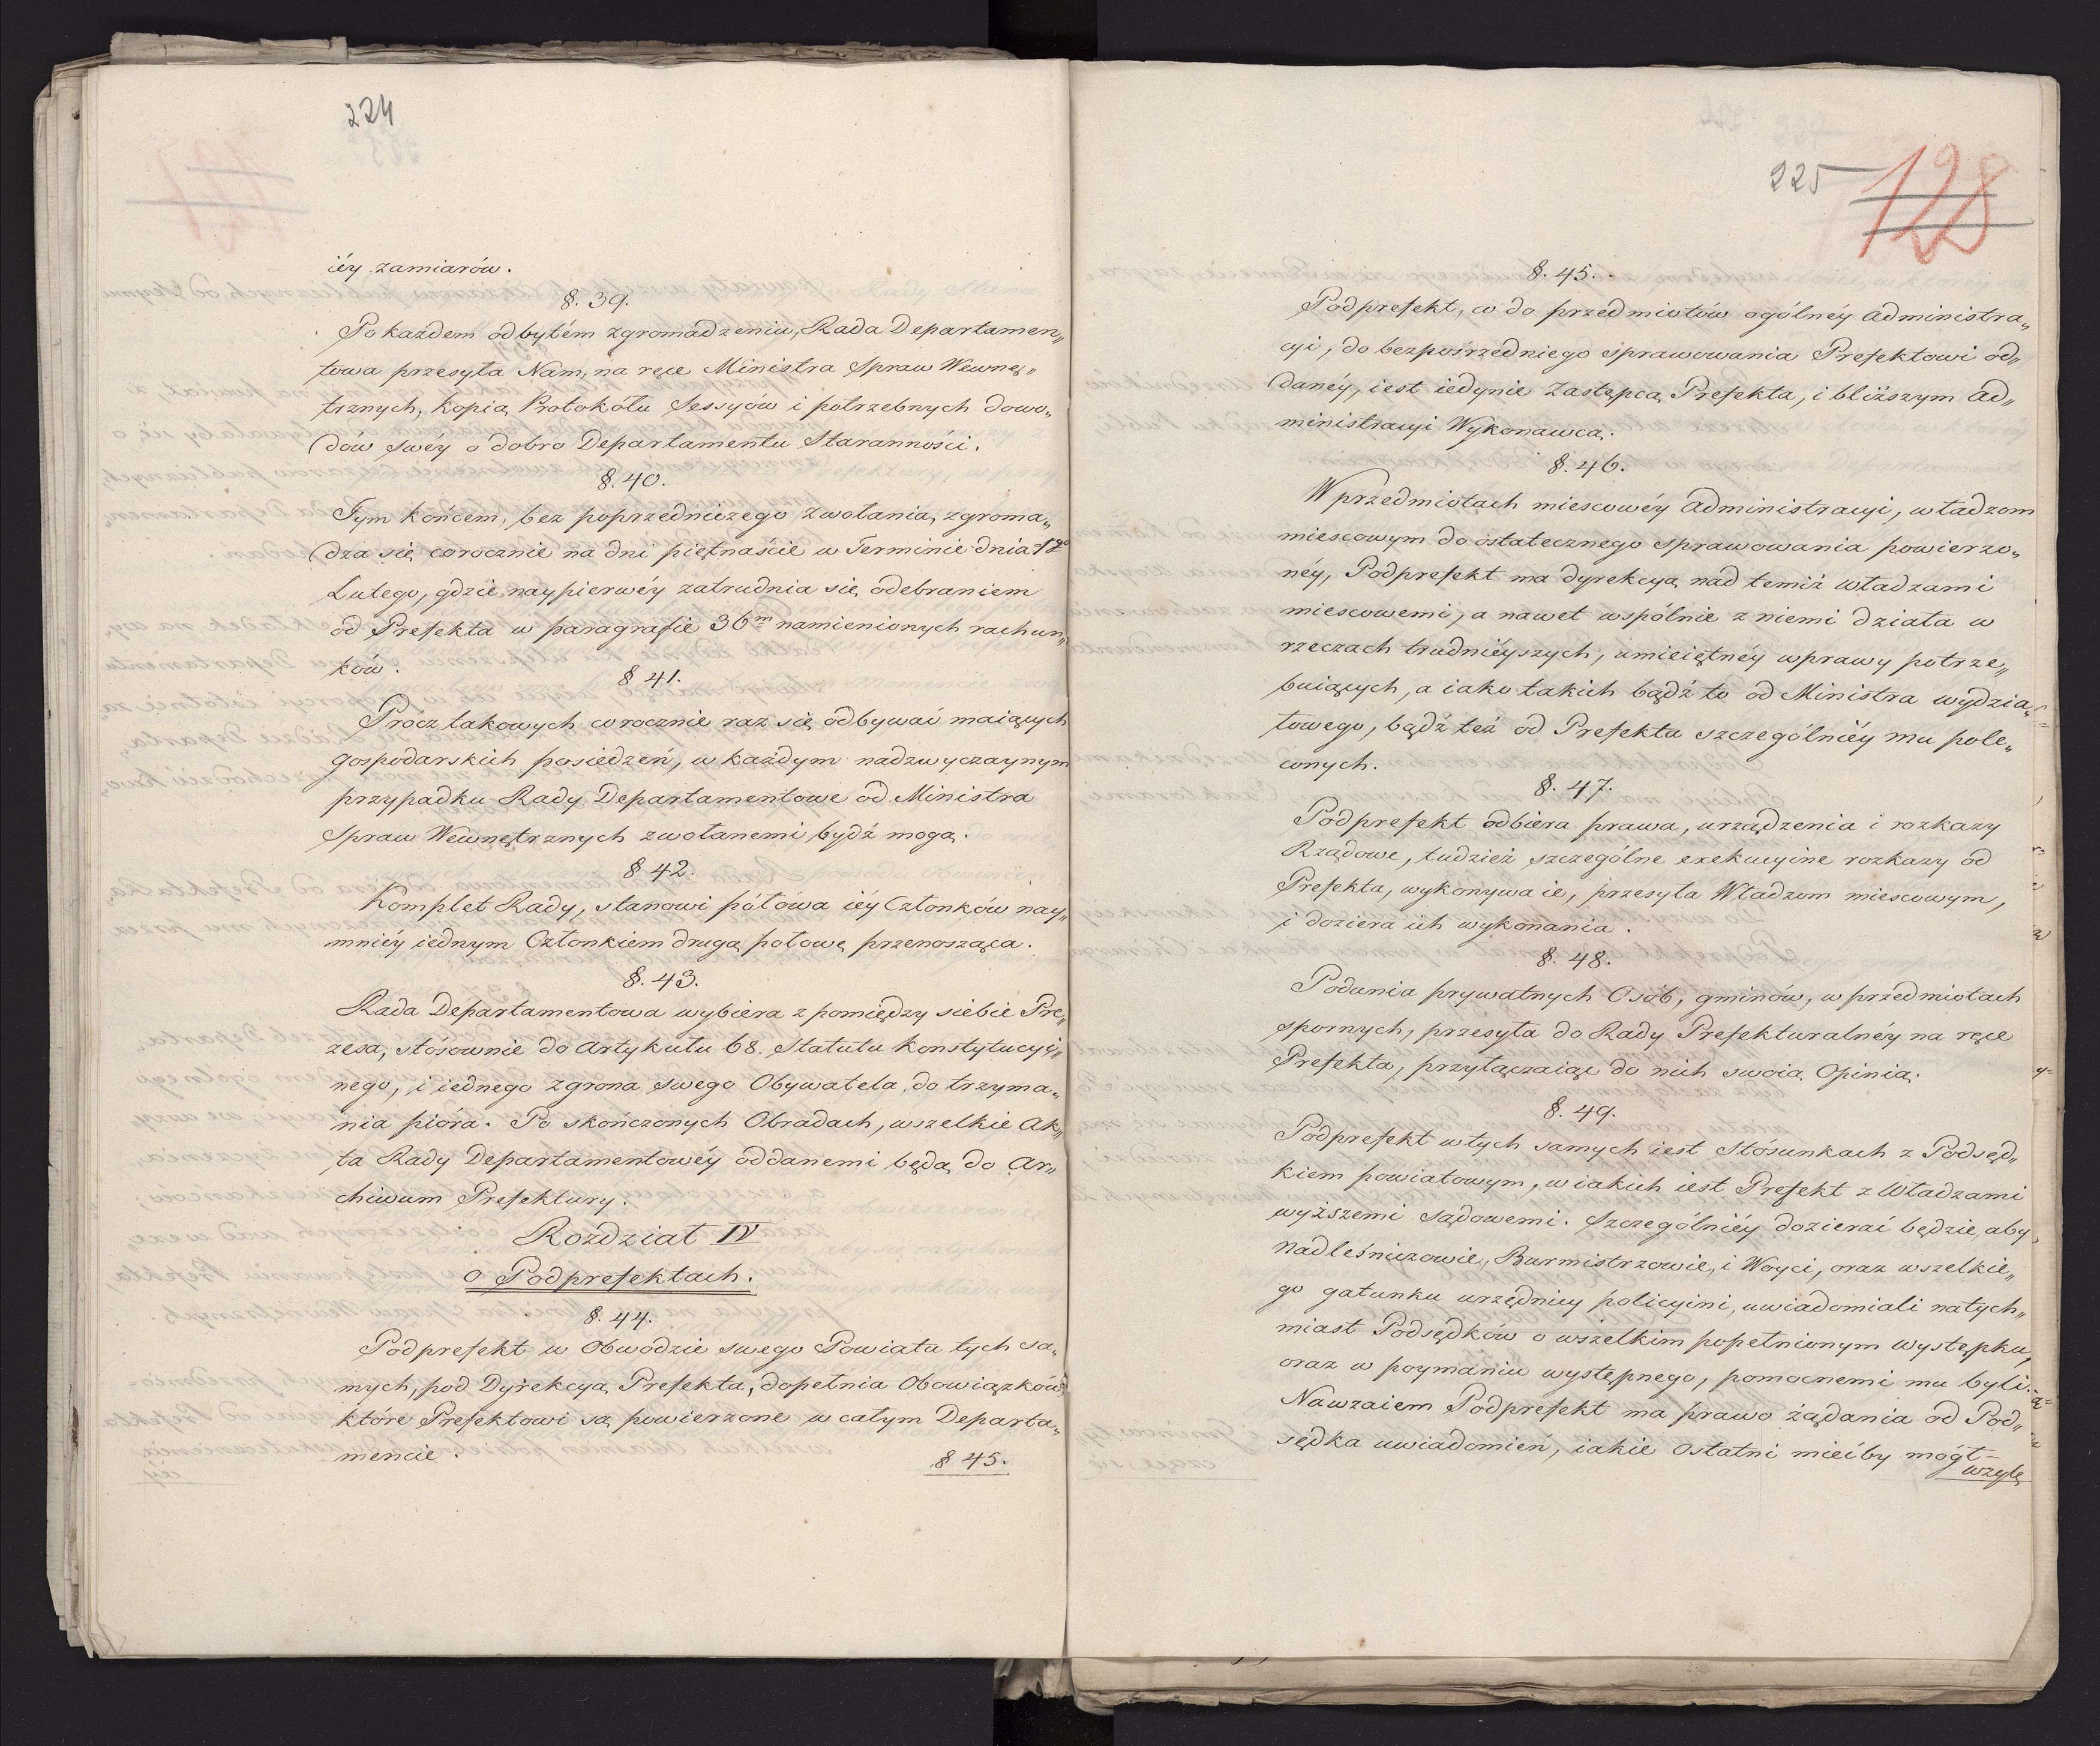 224
iéy zamiarów.
§. 39.
Po każdem odbytém zgromadzeniu, Rada Departamen„
towa przesyła Nam, na ręce Ministra Spraw Wewnę„
trznych, Kopią Protokółu Sessyów i potrzebnych dowo„
dów swéy o dobro Departamentu Staranności.
§. 40.
Tym końcem, bez poprzedniczego zwołania, zgroma„
dza się corocznie na dni piętnaście w Terminie dnia 1go
Lutego, gdzie naypierwéy zatrudnia się odebraniem
od Prefekta w paragrafie 36m namienionych rachun„
ków.
§ 41.
Prócz takowych corocznie raz się odbywać maiących
gospodarskich posiedzeń, w każdym nadzwyczaynym
przypadku Rady Departamentowe od Ministra
Spraw Wewnętrznych zwołanemi bydź mogą.
§ 42.
Komplet Rady, stanowi połówa iéy Członków nay„
mniéy iednym Członkiem drugą połowę przenosząca.
§. 43.
Rada Departamentowa wybiera z pomiędzy siebie Pre„
zesa, stósownie do Artykułu 68. Statutu Konstytucyi„
nego, i iednego z grona swego Obywatela, do trzyma„
nia pióra. Po skończonych Obradach, wszelkie Ak„
ta Rady Departamentowéy oddanemi będą do Ar„
chiwum Prefektury.
Rozdział IV
o Podprefektach.
§. 44.
Podprefekt w Obwodzie swego Powiatu tych sa„
mych, pod Dyrekcyą Prefekta, dopełnia Obowiązków
które Prefektowi są powierzone w całym Departa„
mencie.
§ 45.
225 128
§. 45.
Podprefekt, co do przedmiotów ogólnéy Administra„
cyi, do bezpośrzedniego sprawowania Prefektowi od„
danéy, iest iedynie Zastępcą Prefekta, i bliższym Ad„
ministracyi Wykonawcą.
§. 46.
W przedmiotach miescowéy Administracyi, władzom
miescowym do ostatecznego sprawowania powierzo„
néy, Podprefekt ma dyrekcyą nad temiż władzami
miescowemi, a nawet wspólnie z niemi działa w
rzeczach trudniéyszych, umieiętnéy wprawy potrze„
buiących, a iako takich bądź to od Ministra wydzia„
łowego, bądź też od Prefekta szczególniéy mu pole„
conych.
§. 47.
Podprefekt odbiera prawa, urządzenia i rozkazy
Rządowe, tudzież szczególne exekucyine rozkazy od
Prefekta, wykonywa ie, przesyła Władzom miescowym,
i doziera ich wykonania.
§. 48.
Podania prywatnych Osób, gminów, w przedmiotach
spornych, przesyła do Rady Prefekturalnéy na ręce
Prefekta, przyłączaiąc do nich swoią Opinią.
§. 49.
Podprefekt w tych samych iest Stósunkach z Podsęd„
kiem powiatowym, w iakich iest Prefekt z Władzami
wyższemi sądowemi. Szczególniéy dozierać będzie, aby
Nadleśniczowie, Burmistrzowie, i Woyci, oraz wszelkie„
go gatunku urzędnicy policyini, uwiadomiali natych„
miast Podsędków o wszelkim popełnionym występku,
oraz w poymaniu występnego, pomocnemi mu byli.
Nawzaiem Podprefekt ma prawo żądania od Pod„
sędka uwiadomień, iakie Ostatni miećby mógł
wzglę